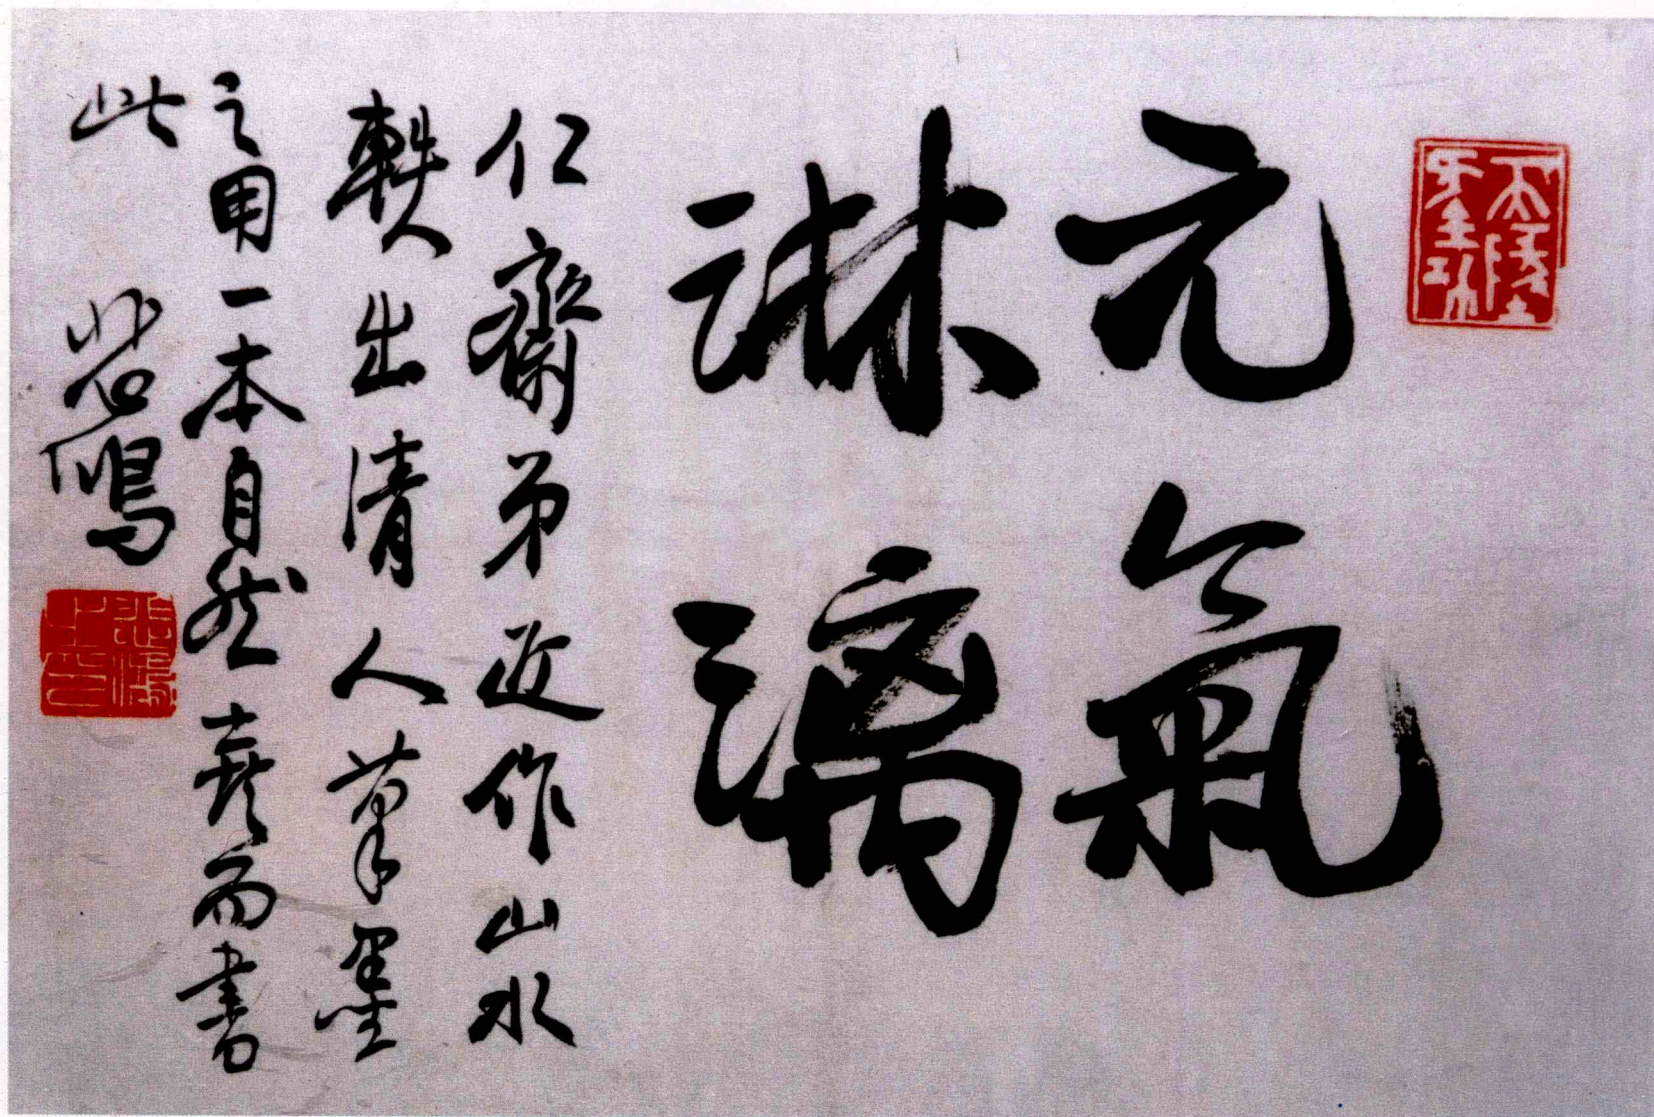 元氣
淋漓
仁齋弟近作山水
軼出清人筆墨
之用一本自然喜而書
此